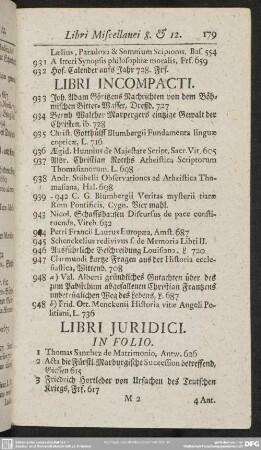 Libri Miscellanei 8. & 12. 179
Lælius, Paradoxa & Somnium Scipionis, Baf. 554
931 A Itteri Synopsis philosophiæ moralis, Frf. 659
932 Hof-Calender aufs Jahr 728. Frf.
LIBRI INCOMPACTI.
933 Joh. Adam Göritzens Nachrichten von dem Böh-
mischen Bitter-Wasser, Dreßd. 727
934 Bernh. Walther Marpergers eintzige Gewalt der
Christen. ib. 728
935 Christ. Gotthülff Blumbergii Fundamenta linguæ
copticæ, L. 716
936 Ægid. Hunnius de Majestate Script. Sacr. Vit. 605
937 Abr. Christian Roths Atheistica Scriptorum
Thomasianorum. L. 698
938 Andr. Stübelii Observationes ad Atheistica Tho-
masiana, Hal. 698
939 - 942 C. G. Blümbergii Veritas mysterii tiaræ
Rom Pontificis, Cygn. Vier mahl.
943 Nicol. Schaffshausen Discursus de pace consti-
tuenda, Viteb. 632
944 Petri Francii Laurus Europæa, Amst. 687
945 Schenckelius redivivus s. de Memoria Libri II.
946 Ausführliche Beschreibung Louisiano, L 720
947 Clarmundi kurtze Fragen aus der Historia eccle-
siastica, Wittenb. 708
948 a) Val. Alberti gründliches Gutachten über des
zum Pabstthum abgefallenen Christian Frantzens
universalischen Weg des Lebens, L. 687
948 b) Frid. Ott. Menckenii Historia vitæ Angeli Po-
litiani, L. 736
LIBRI JURIDICI.
IN FOLIO.
1 Thomas Sanchez de Matrimonio, Antw. 626
2 Acta die Fürstl. Marburgische Succession betreffend,
Giessen 615
3 Friedrich Hortleder von Ursachen des Teutschen
Kriegs, Frf. 617
M 2 4 Ant.